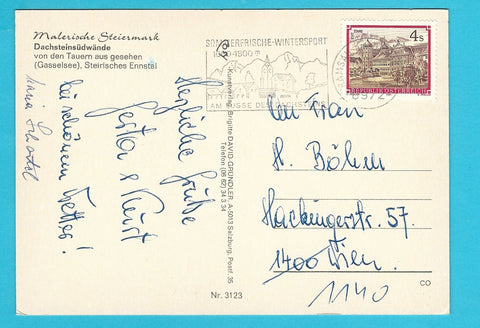 Malerische Steiermark
Dachsteinsüdwände
von den Tauern aus gesehen
(Gasselsee), Steirisches Ennstal
Herzliche Grüße
bei schönem Wetter!
Gesta & Kurt
Maria
SOMMERFRISCHE-WINTERSPORT
AM FUSSE DES DACHSTEIN
8972
4 s
REPUBLIK ÖSTERREICH
Kunstverlag Brigitte DAVID-GRÜNDLER, A-5013 Salzburg, Postf. 35
Telefon (06 62) 34 3 34
An Frau
H. Böhm
Hackingerstr. 57.
1400 Wien.
1140
Nr. 3123
CO